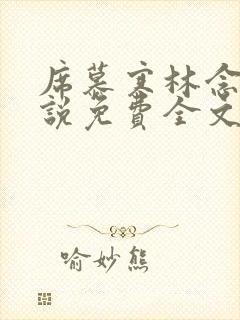 席慕寒林念
說免費全文
喻妙熊